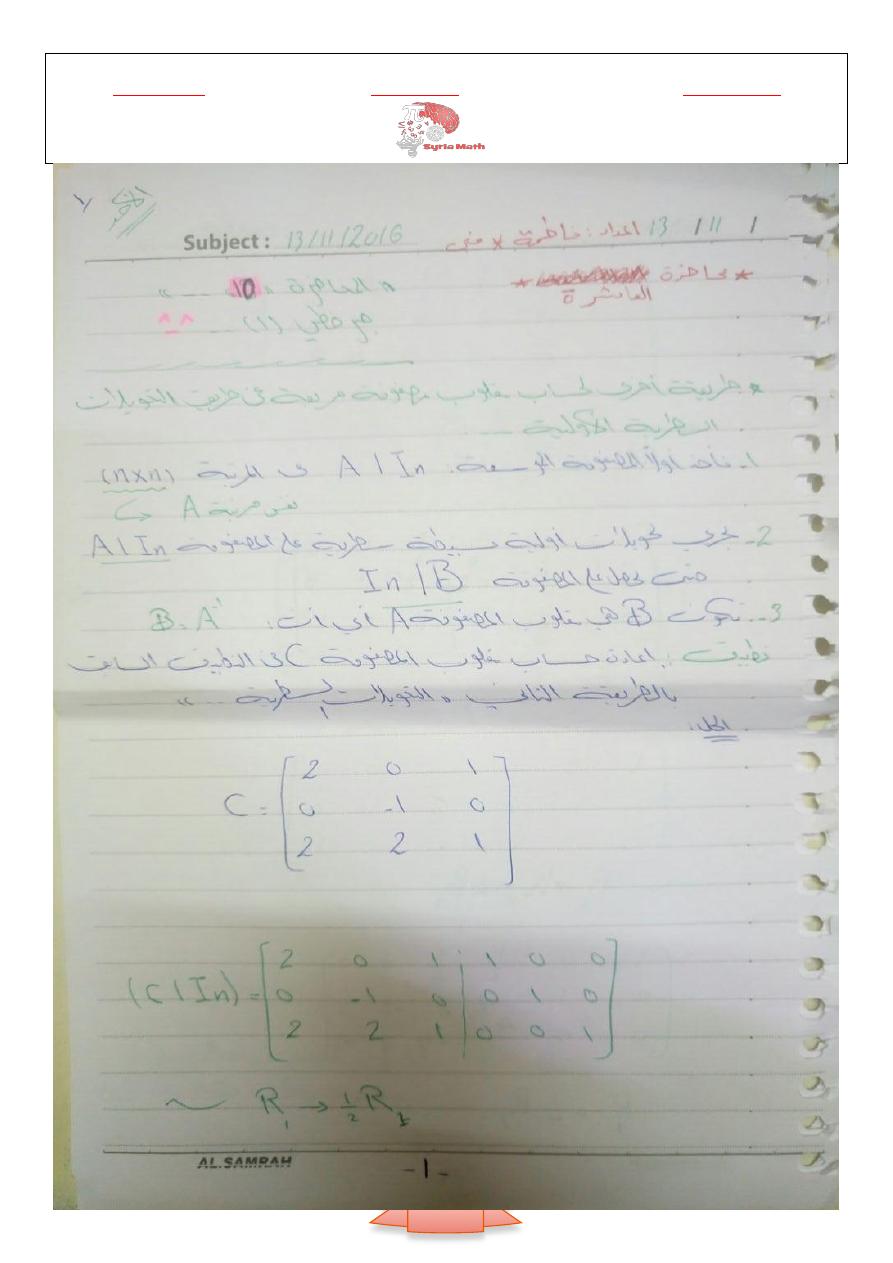 Syria Math
Subject: 13/11/2016
13 / 11 / اعداد: فاطمة * منى
* محاضرة
العاشرة *
" المحاضرة 10 ... "
جبر خطي (1) ... ^_^
* طريقة أخرى لحساب مقلوب مصفوفة مربعة عن طريق التحويلات
السطرية الأولية ...
1- نأخذ أولاً المصفوفة الموسعة: A | In من المرتبة (n×n)
نفس مرتبة A
2- نجري تحويلات أولية بسيطة سطرية على المصفوفة A | In
حتى نحصل على المصفوفة In | B
3- تكون B هي مقلوب المصفوفة A أي أن: B = A⁻¹
تطبيق: إعادة حساب مقلوب المصفوفة C في التطبيق السابق
بالطريقة الثانية " التحويلات السطرية ... "
الحل:
C = [ 2 0 1
0 -1 0
2 2 1 ]
(C | In) = [ 2 0 1 | 1 0 0
0 -1 0 | 0 1 0
2 2 1 | 0 0 1 ]
~ R₁ → ½ R₁
AL.SAMRAH
-1-